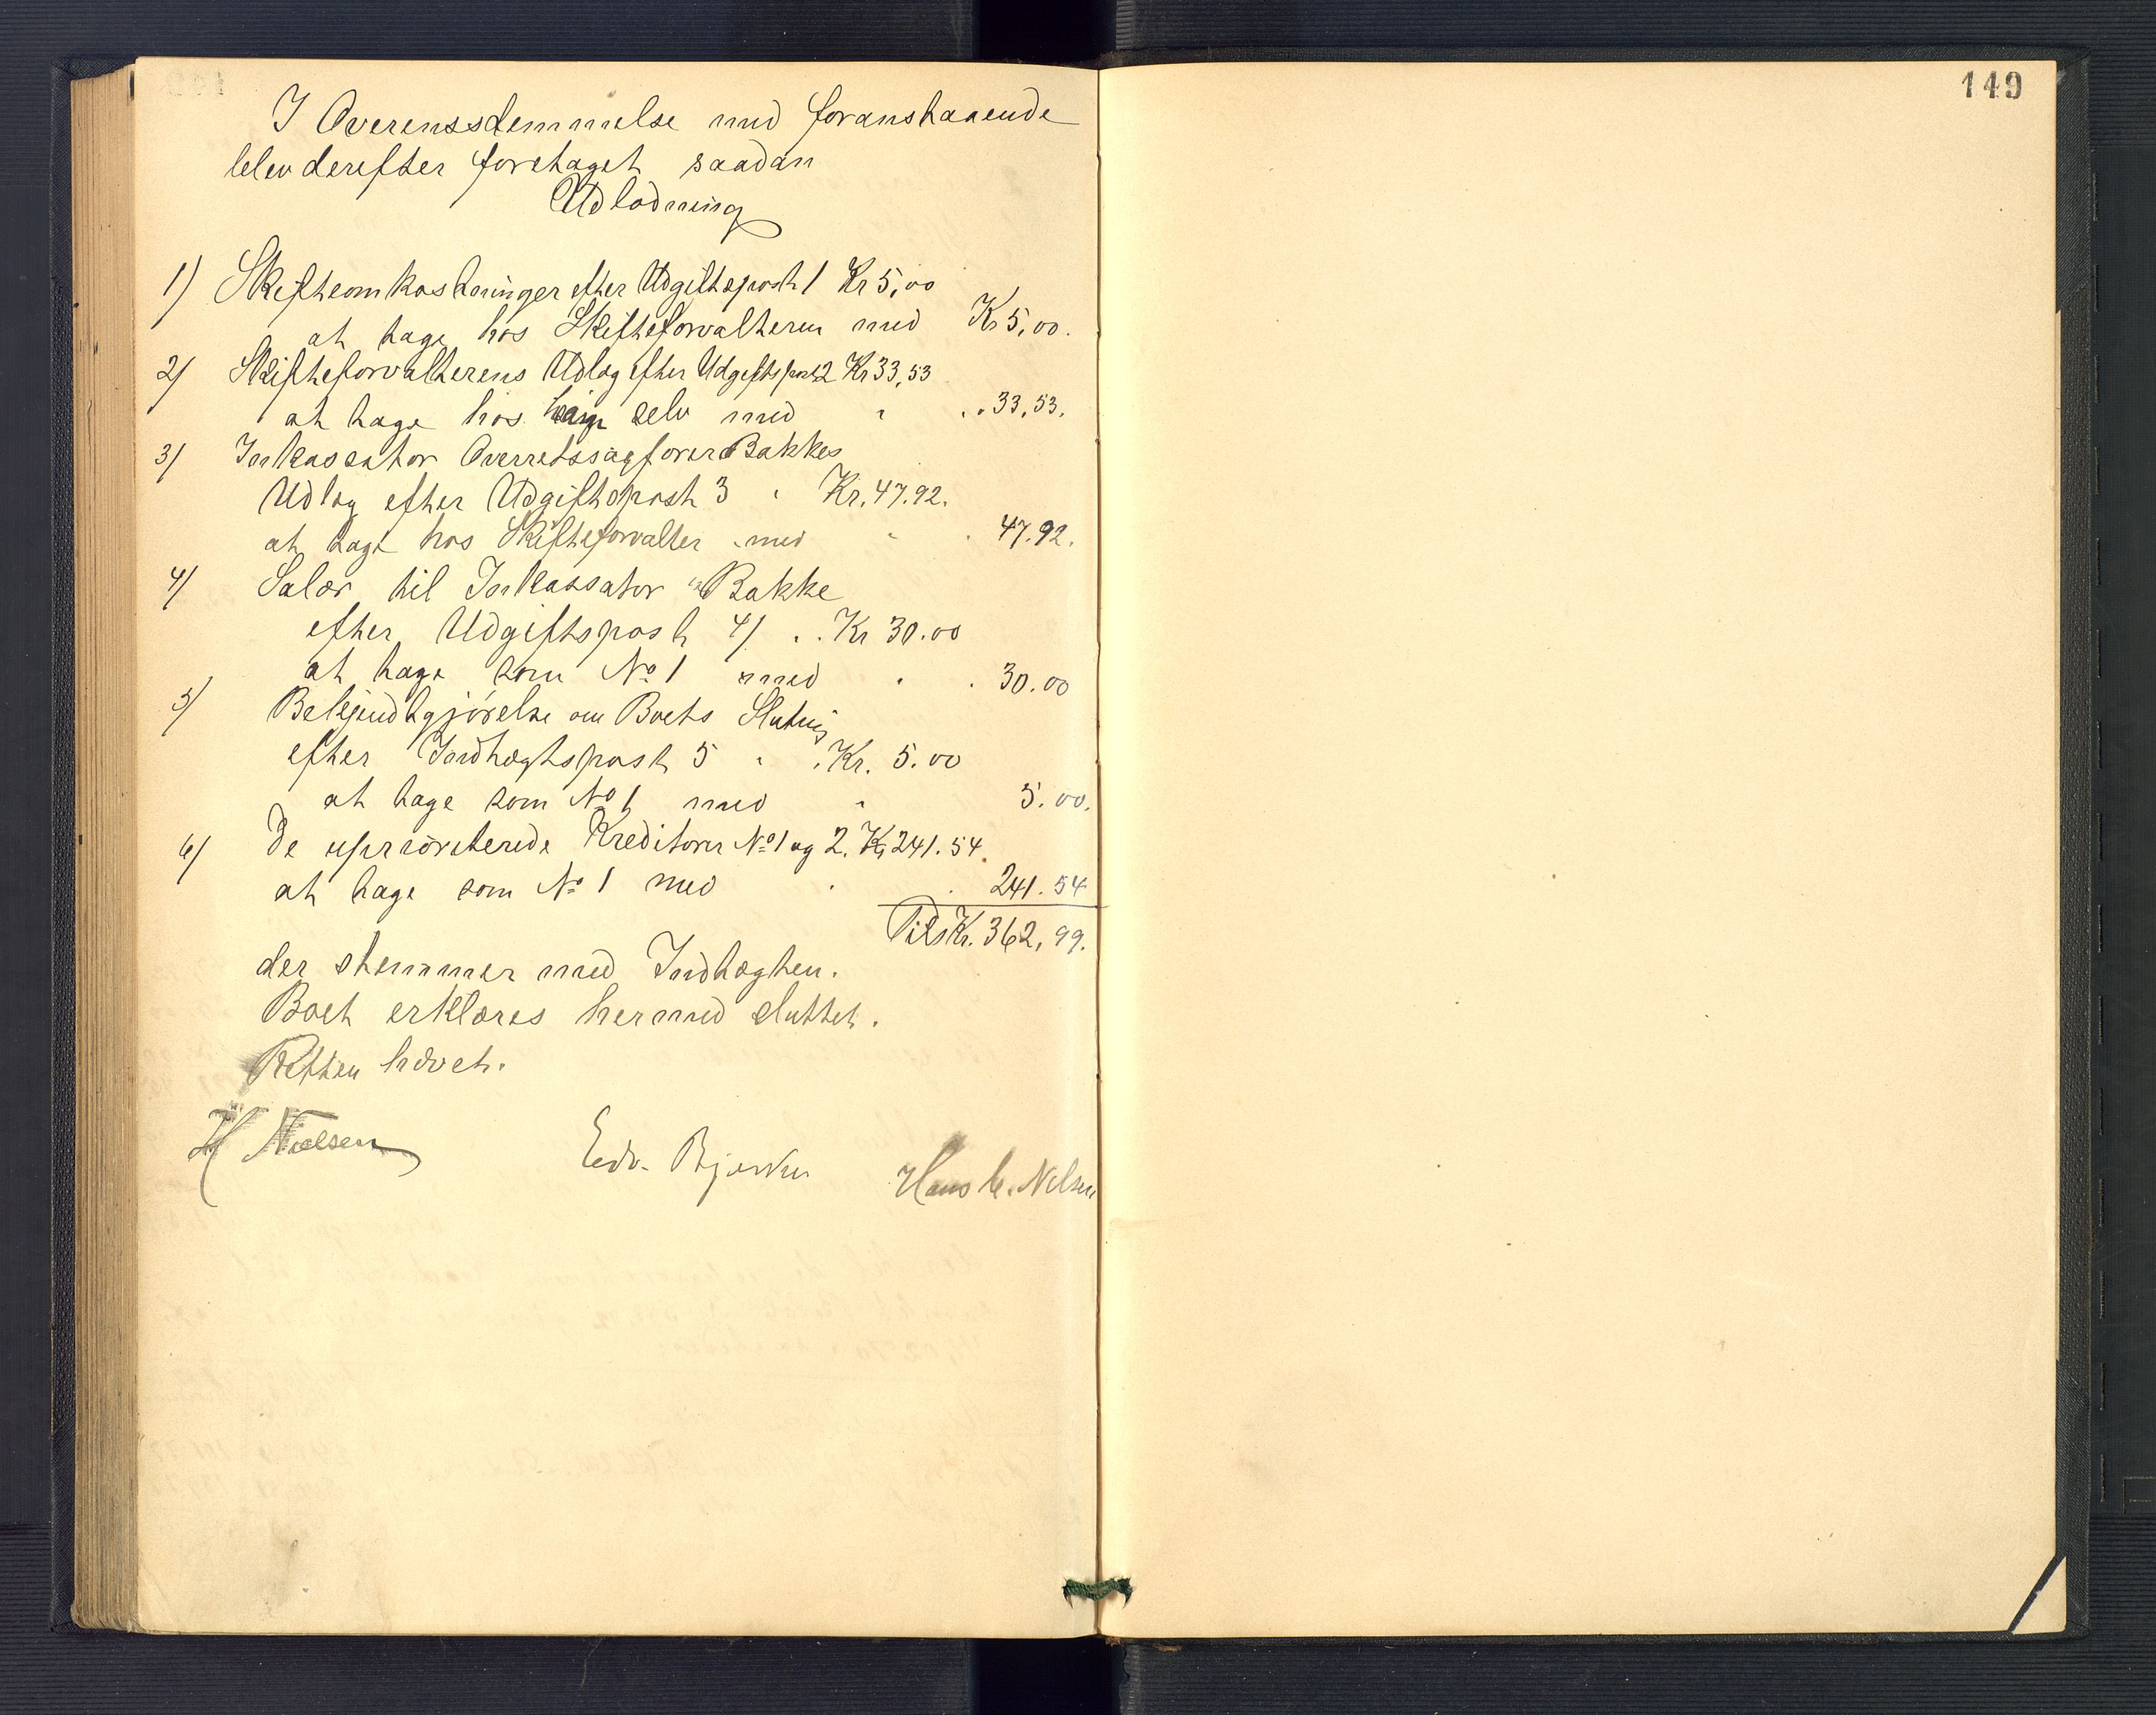 I Overensstemmelse med foranstaaende
blev derefter foretaget saadan
Udlodning
1) Skifteomkostninger efter Udgiftspost 1 Kr 5,00
at tage hos Skifteforvalteren med Kr 5,00.
2) Skifteforvalterens Udlæg efter Udgiftspost 2 Kr 33,53
at tage hos ham selv med " . . 33,53.
3) Inkassator Overretssagfører Bakkes
Udlæg efter Udgiftspost 3 . Kr. 47.92.
at tage hos Skifteforvalter med 47.92.
4) Salær til Inkassator Bakke
efter Udgiftspost 4) . . Kr 30.00
at tage som No 1 med . . 30.00
5) Bekjendtgjørelse om Boets Slutning
efter Indtægtspost 5 . . Kr. 5.00
at tage som No 1 med " 5.00.
6) De uprióriterede Kreditorer No 1 og 2. Kr 241.54.
at tage som No 1 med . . 241.54
Tils Kr. 362,99.
der stemmer med Indtægten.
Boet erklæres hermed sluttet.
Retten hævet.
H Nielsen Edv. Bjerke Hans C. Nilsen
149